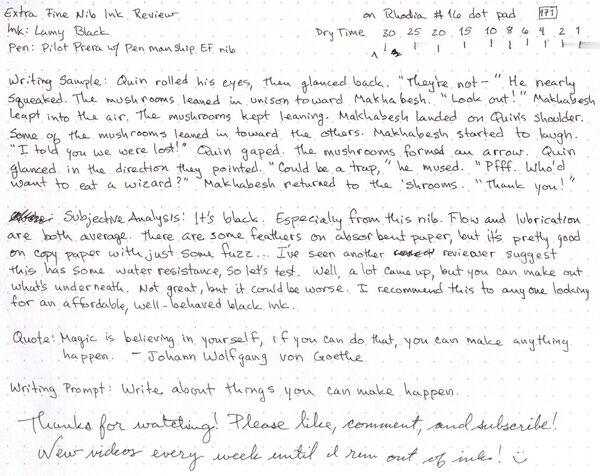 Extra Fine Nib Ink Review on Rhodia #16 dot pad 171
Ink: Lamy Black Dry Time 30 25 20 15 10 8 6 4 2 1
Pen: Pilot Prera w/ Penmanship EF nib
Writing Sample: Quin rolled his eyes, then glanced back. "They're not—" He nearly
squeaked. The mushrooms leaned in unison toward Makhabesh. "Look out!" Makhabesh
leapt into the air. The mushrooms kept leaning. Makhabesh landed on Quin's shoulder.
Some of the mushrooms leaned in toward the others. Makhabesh started to laugh.
"I told you we were lost!" Quin gaped. The mushrooms formed an arrow. Quin
glanced in the direction they pointed. "Could be a trap," he mused. "Pfff. Who'd
want to eat a wizard?" Makhabesh returned to the 'shrooms. "Thank you!"
Subjective Analysis: It's black. Especially from this nib. Flow and lubrication
are both average. There are some feathers on absorbent paper, but it's pretty good
on copy paper with just some fuzz... I've seen another reviewer suggest
this has some water resistance, so let's test. Well, a lot came up, but you can make out
what's underneath. Not great, but it could be worse. I recommend this to anyone looking
for an affordable, well-behaved black ink.
Quote: Magic is believing in yourself, if you can do that, you can make anything
happen. — Johann Wolfgang von Goethe
Writing Prompt: Write about things you can make happen.
Thanks for watching! Please like, comment, and subscribe!
New videos every week until I run out of inks!